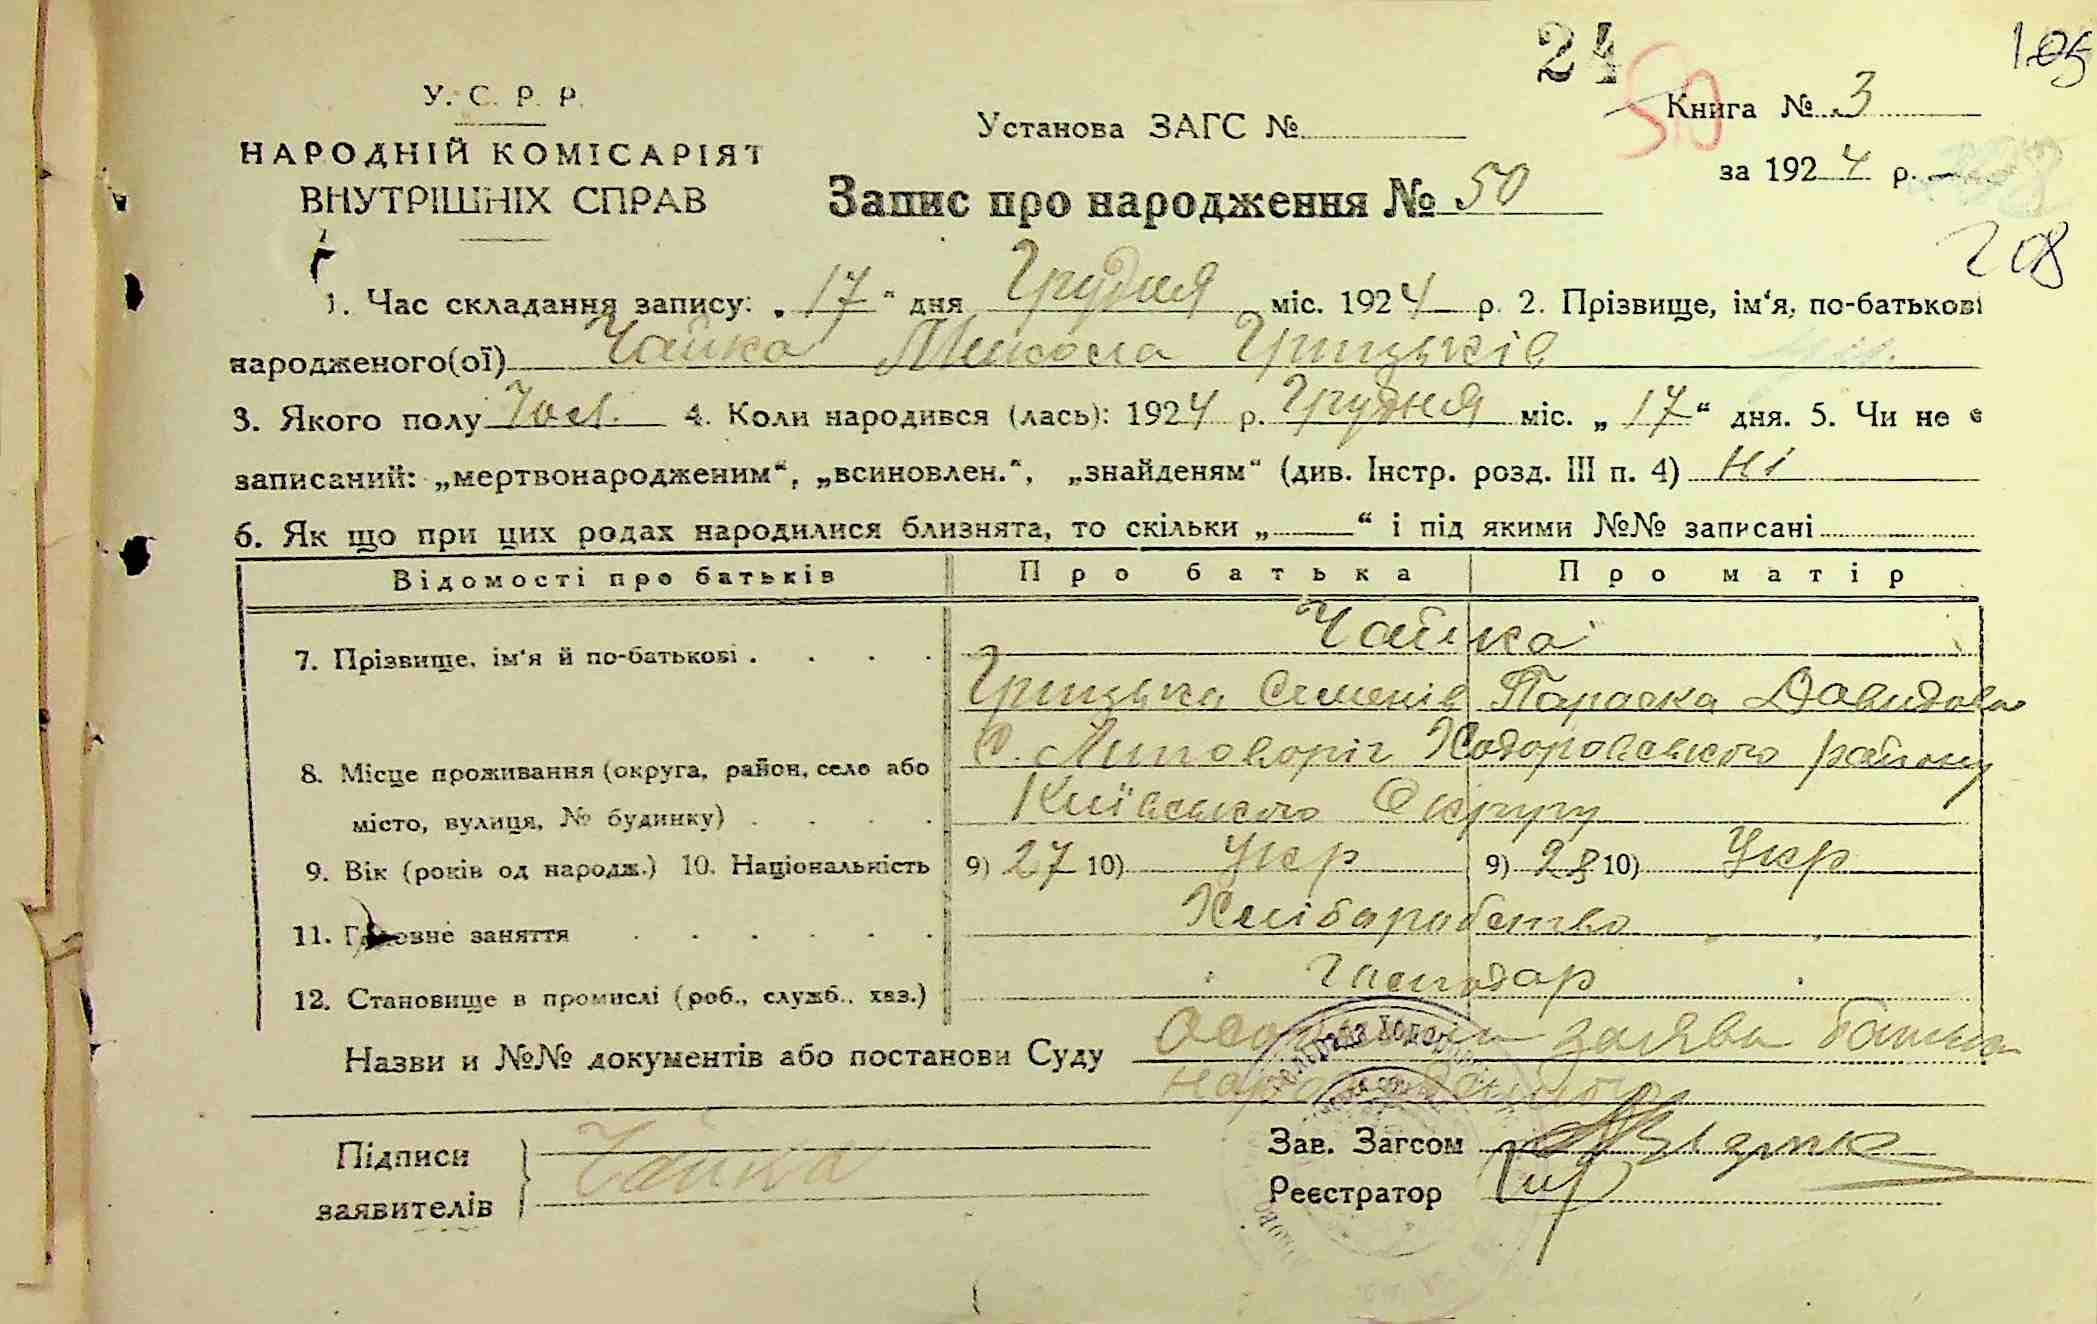 24
105
У. С. Р. Р.
50
Книга № 3
Установа ЗАГС №
НАРОДНІЙ КОМІСАРІЯТ
за 1924 р.
ВНУТРІШНІХ СПРАВ
Запис про народження № 50
208
1. Час складання запису: „17“ дня Грудня міс. 1924 р. 2. Прізвище, ім‘я, по-батькові
народженого(ої) Чайка Микола Грицьків
3. Якого полу Чол. 4. Коли народився (лась): 1924 р. Грудня міс. „17“ дня. 5. Чи не є
записаний: „мертвонародженим“, „всиновлен.“, „знайденям“ (див. Інстр. розд. III п. 4) Ні
6. Як що при цих родах народилися близнята, то скільки „ “ і під якими №№ записані
Відомості про батьків Про батька Про матір
Чайка
7. Прізвище, ім‘я й по-батькові
Грицька Семенів Параска Давидова
С. Липоворіг Ходоровського району
8. Місце проживання (округа, район, село або
місто, вулиця, № будинку)
Київського Округу
9. Вік (років од народж.) 10. Національність 9) 27 10) Укр 9) 28 10) Укр
Хліборобство
11. Головне заняття
Господар
12. Становище в промислі (роб., служб., хаз.)
Назви и №№ документів або постанови Суду заява батька
народженого
Підписи
заявителів
Чайка
Зав. Загсом
Реєстратор